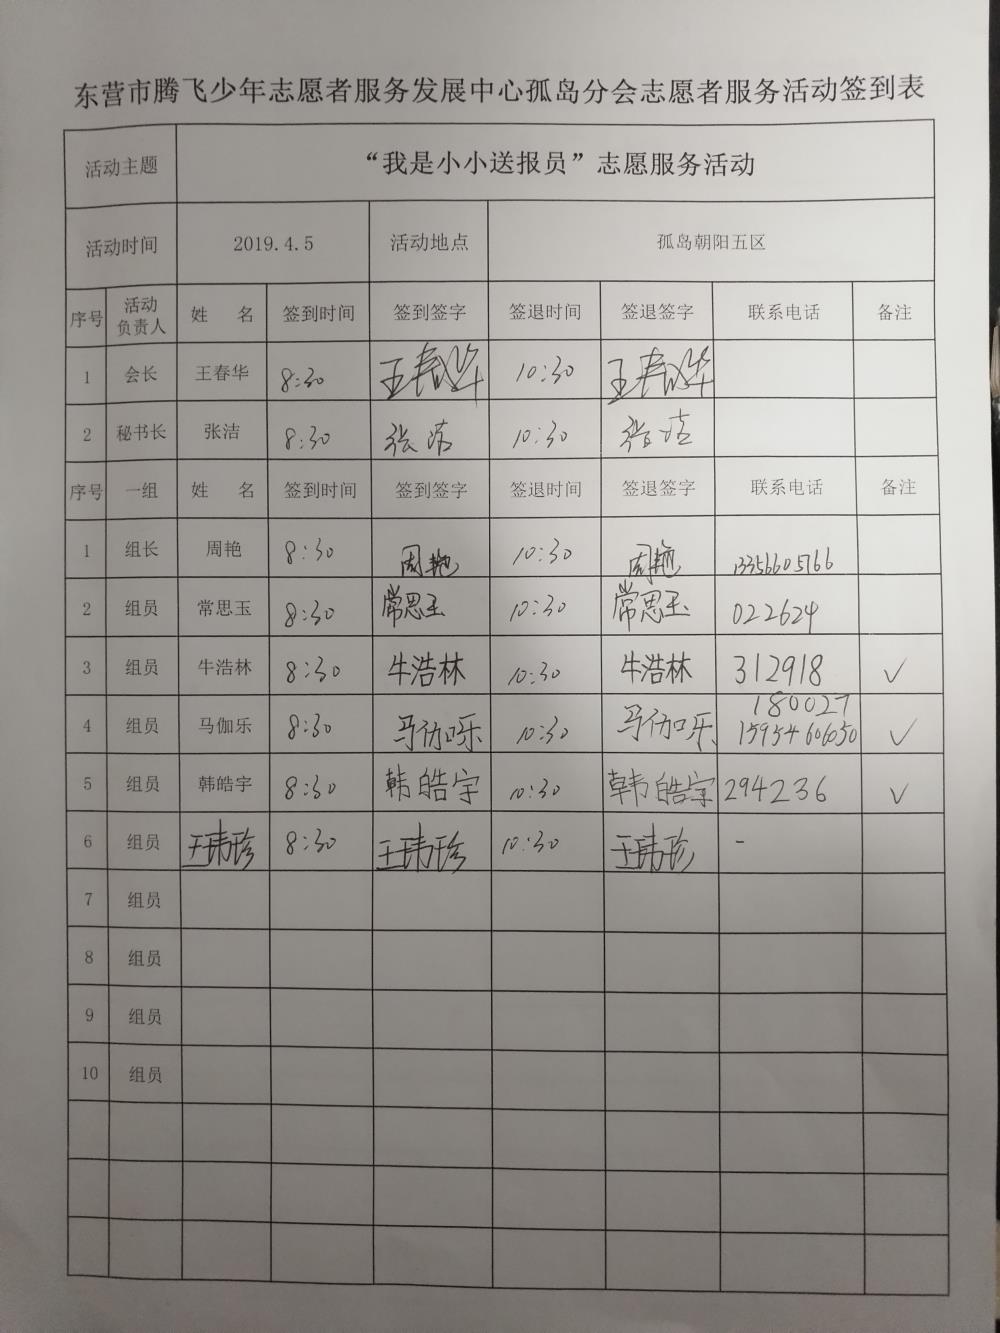 东营市腾飞少年志愿者服务发展中心孤岛分会志愿者服务活动签到表
活动主题 “我是小小送报员”志愿服务活动
活动时间 2019.4.5 活动地点 孤岛朝阳五区
序号 活动负责人 姓 名 签到时间 签到签字 签退时间 签退签字 联系电话 备注
1 会长 王春华 8:30 王春华 10:30 王春华
2 秘书长 张洁 8:30 张洁 10:30 张洁
序号 一组 姓 名 签到时间 签到签字 签退时间 签退签字 联系电话 备注
1 组长 周艳 8:30 周艳 10:30 周艳 13356605766
2 组员 常思玉 8:30 常思玉 10:30 常思玉 022624
3 组员 牛浩林 8:30 牛浩林 10:30 牛浩林 312918 ✓
180027
4 组员 马伽乐 8:30 马伽乐 10:30 马伽乐 15954606050 ✓
5 组员 韩皓宇 8:30 韩皓宇 10:30 韩皓宇 294236 ✓
6 组员 王玮珍 8:30 王玮珍 10:30 王玮珍 -
7 组员
8 组员
9 组员
10 组员